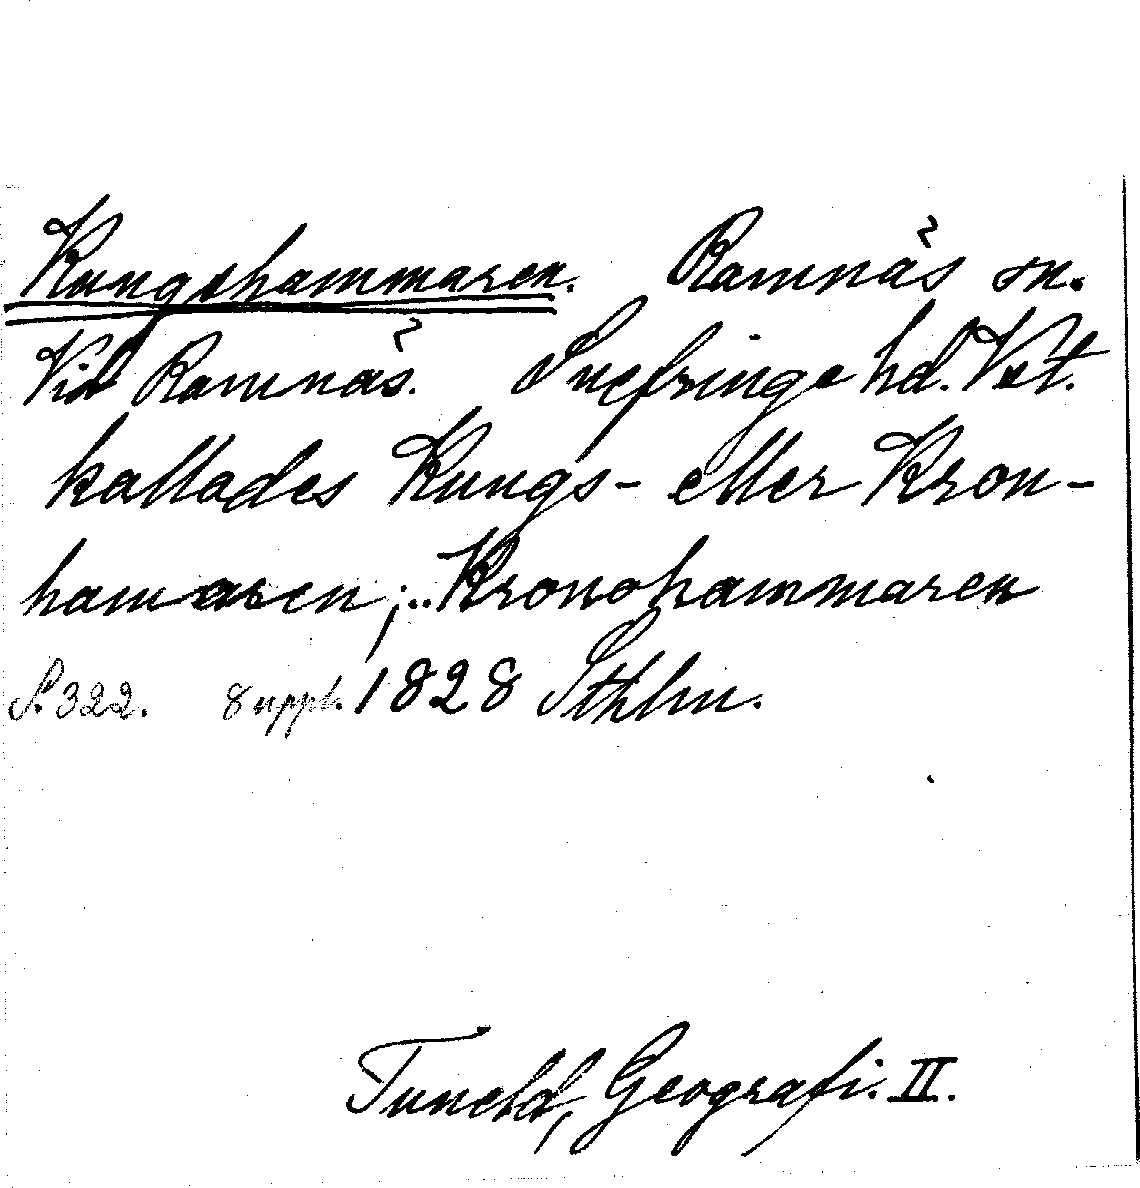 Kungshammaren. Ramnäs sn.
Vid Ramnäs. Snefringe hd. Vstt.
kallades Kungs- eller Kron-
hamaren; Kronohammaren
S. 322. 8 uppl. 1828 Sthlm.
Tuneld, Geografi. II.